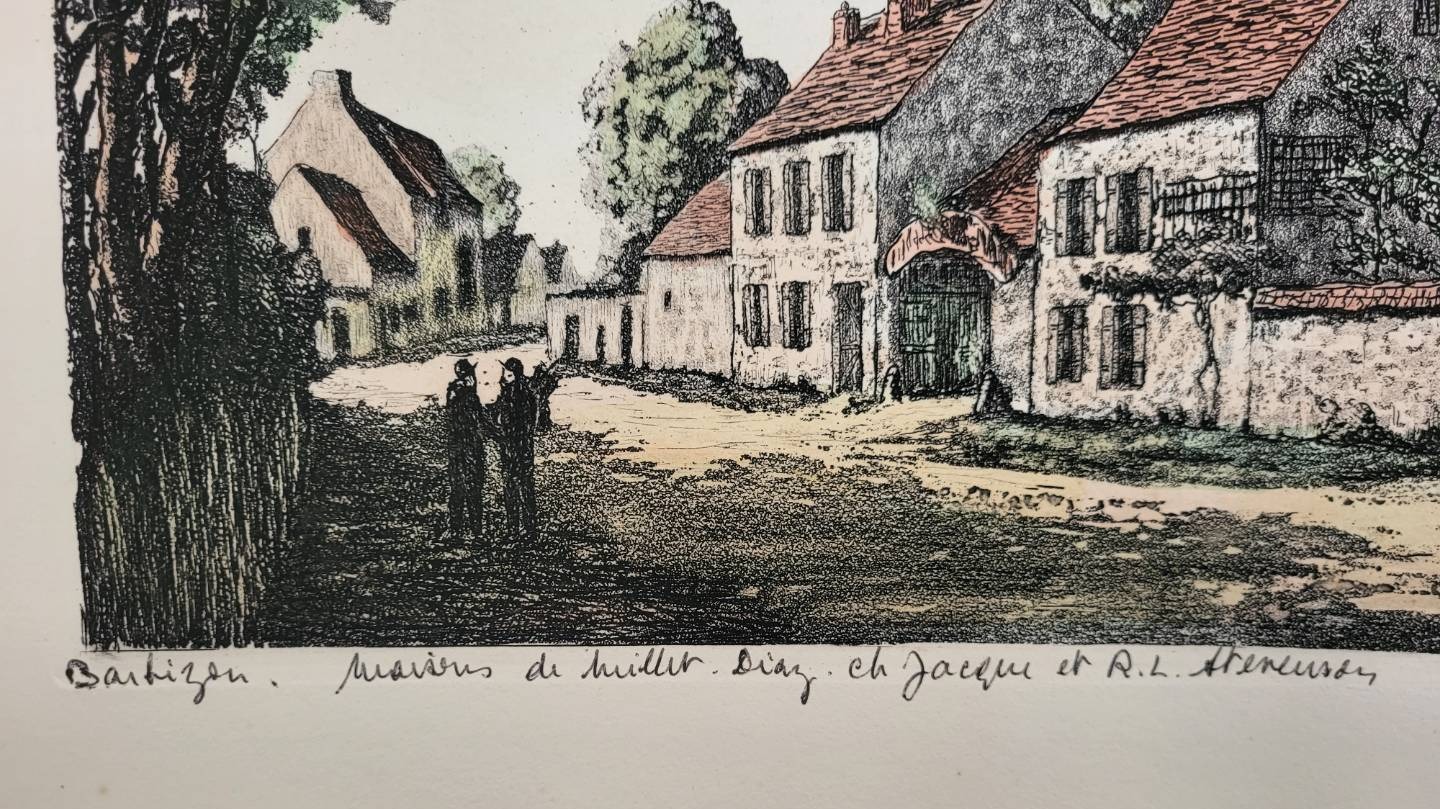 Barbizon. Maisons de Millet. Diaz. ch Jacque et R.L. Stevenson